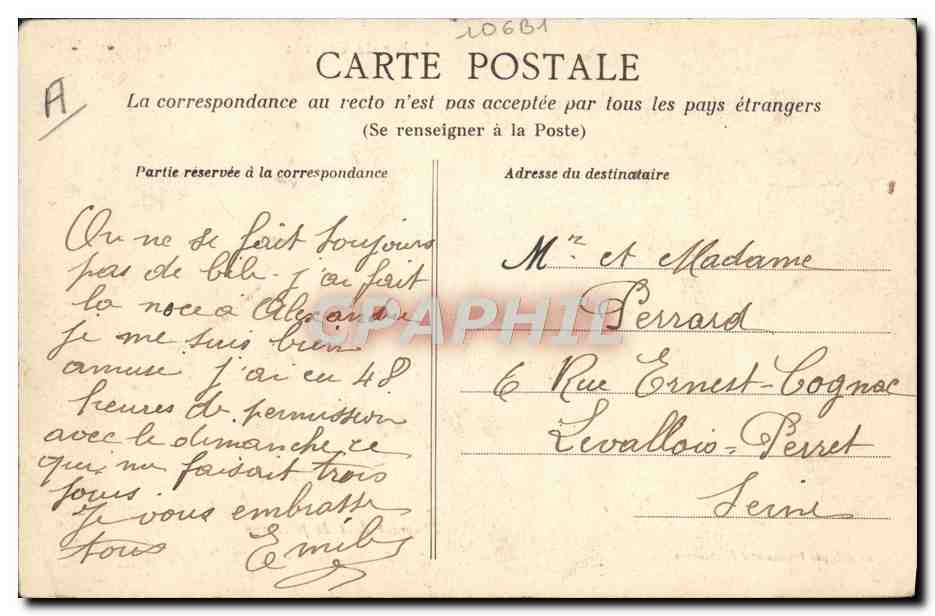 106B1
A
CARTE POSTALE
La correspondance au recto n'est pas acceptée par tous les pays étrangers
(Se renseigner à la Poste)
Partie réservée à la correspondance
On ne se fait toujours
pas de bile. j'ai fait
la noce a Alexandre
je me suis bien
amuse j'ai eu 48
heures de permission
avec le dimanche ce
qui me faisait trois
jours.
Je vous embrasse
tous Emile
Adresse du destinataire
Mr et Madame
Perrard
6 Rue Ernest-Cognac
Levallois-Perret
Seine
CPAPHIL